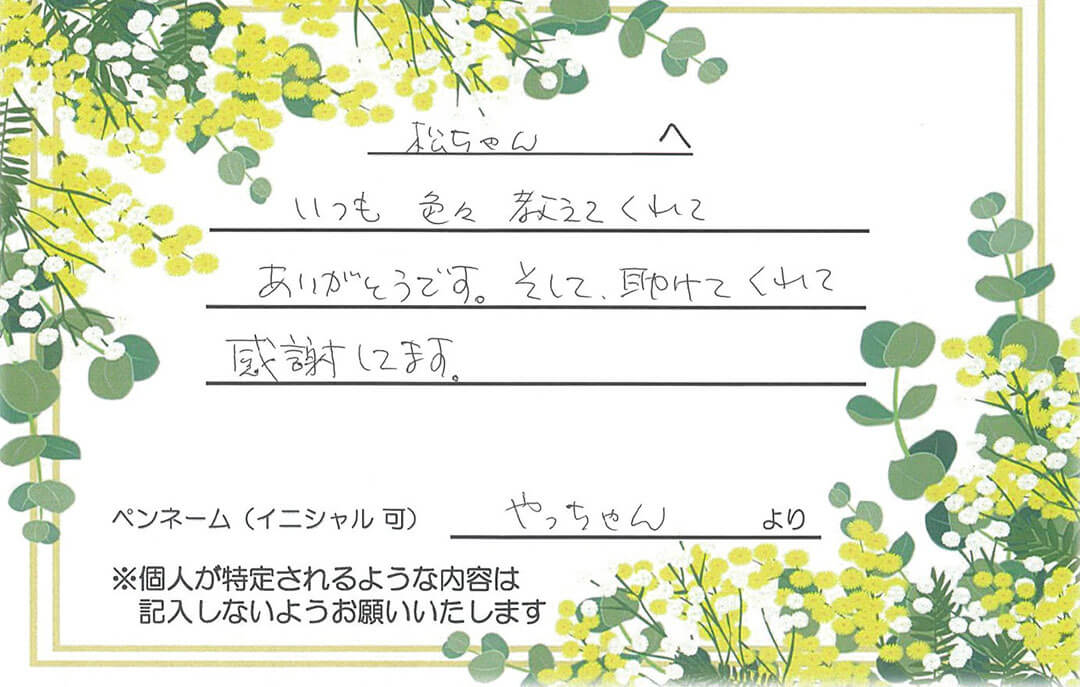 松ちゃん へ
いつも 色々 教えてくれて
ありがとうです。そして、助けてくれて
感謝してます。
ペンネーム（イニシャル 可） やっちゃん より
※個人が特定されるような内容は
記入しないようお願いいたします